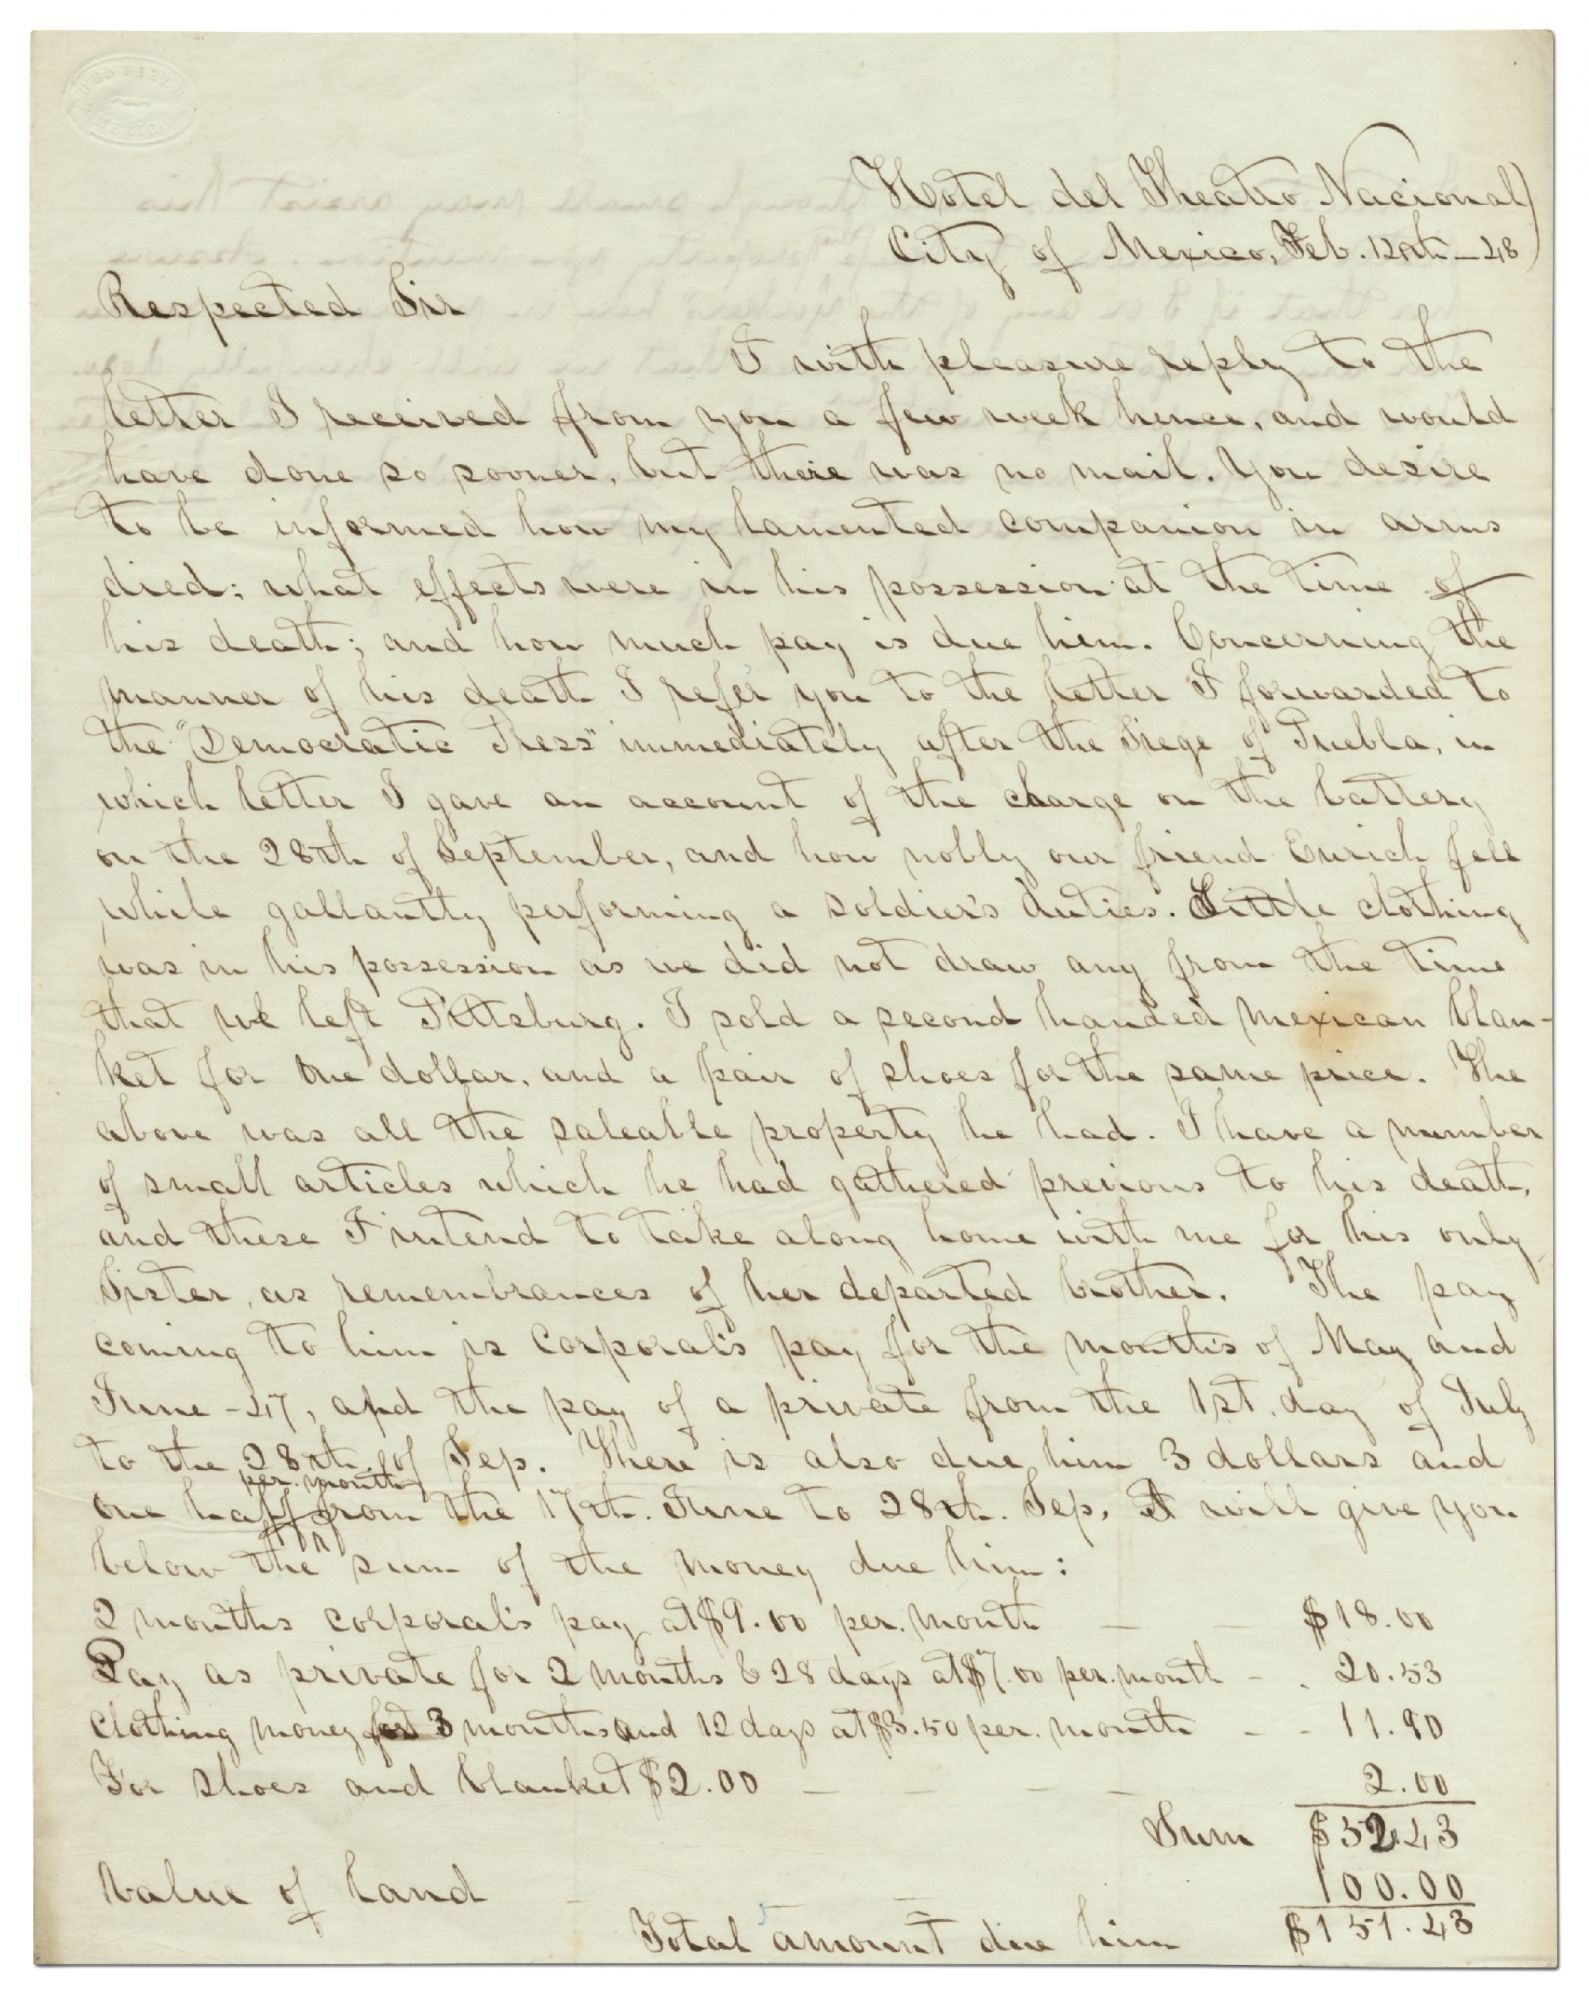 Hotel del Theatro Nacional)
City of Mexico, Feb. 12th - 48)
Respected Sir
I with pleasure reply to the
letter I received from you a few week hence, and would
have done so sooner, but there was no mail. You desire
to be informed how my lamented companion in arms
died; what effects were in his possession at the time of
his death; and how much pay is due him. Concerning the
manner of his death I refer you to the letter I forwarded to
the "Democratic Press" immediately after the Siege of Puebla, in
which letter I gave an account of the charge on the battery
on the 28th of September, and how nobly our friend Eurich fell
while gallantly performing a soldier's duties. Little clothing
was in his possession as we did not draw any from the time
that we left Pittsburg. I sold a second handed Mexican blan-
ket for one dollar, and a pair of shoes for the same price. The
above was all the saleable property he had. I have a number
of small articles which he had gathered previous to his death,
and these I intend to take along home with me for his only
Sister, as remembrances of her departed brother. The pay
coming to him is Corporal's pay for the months of May and
June -47, and the pay of a private from the 1st. day of July
to the 28th of Sep. There is also due him 3 dollars and
per. month
one half from the 17th. June to 28th. Sep. I will give you
below the sum of the money due him:
2 months corporal's pay at $9.00 per. month - - $18.00
Pay as private for 2 months & 28 days at $7.00 per. month - . 20.53
Clothing money for 3 months and 12 days at $3.50 per. month - - 11.90
For shoes and blanket $2.00 - - - 2.00
Sum $52.43
Value of land - - 100.00
Total amount due him $151.43